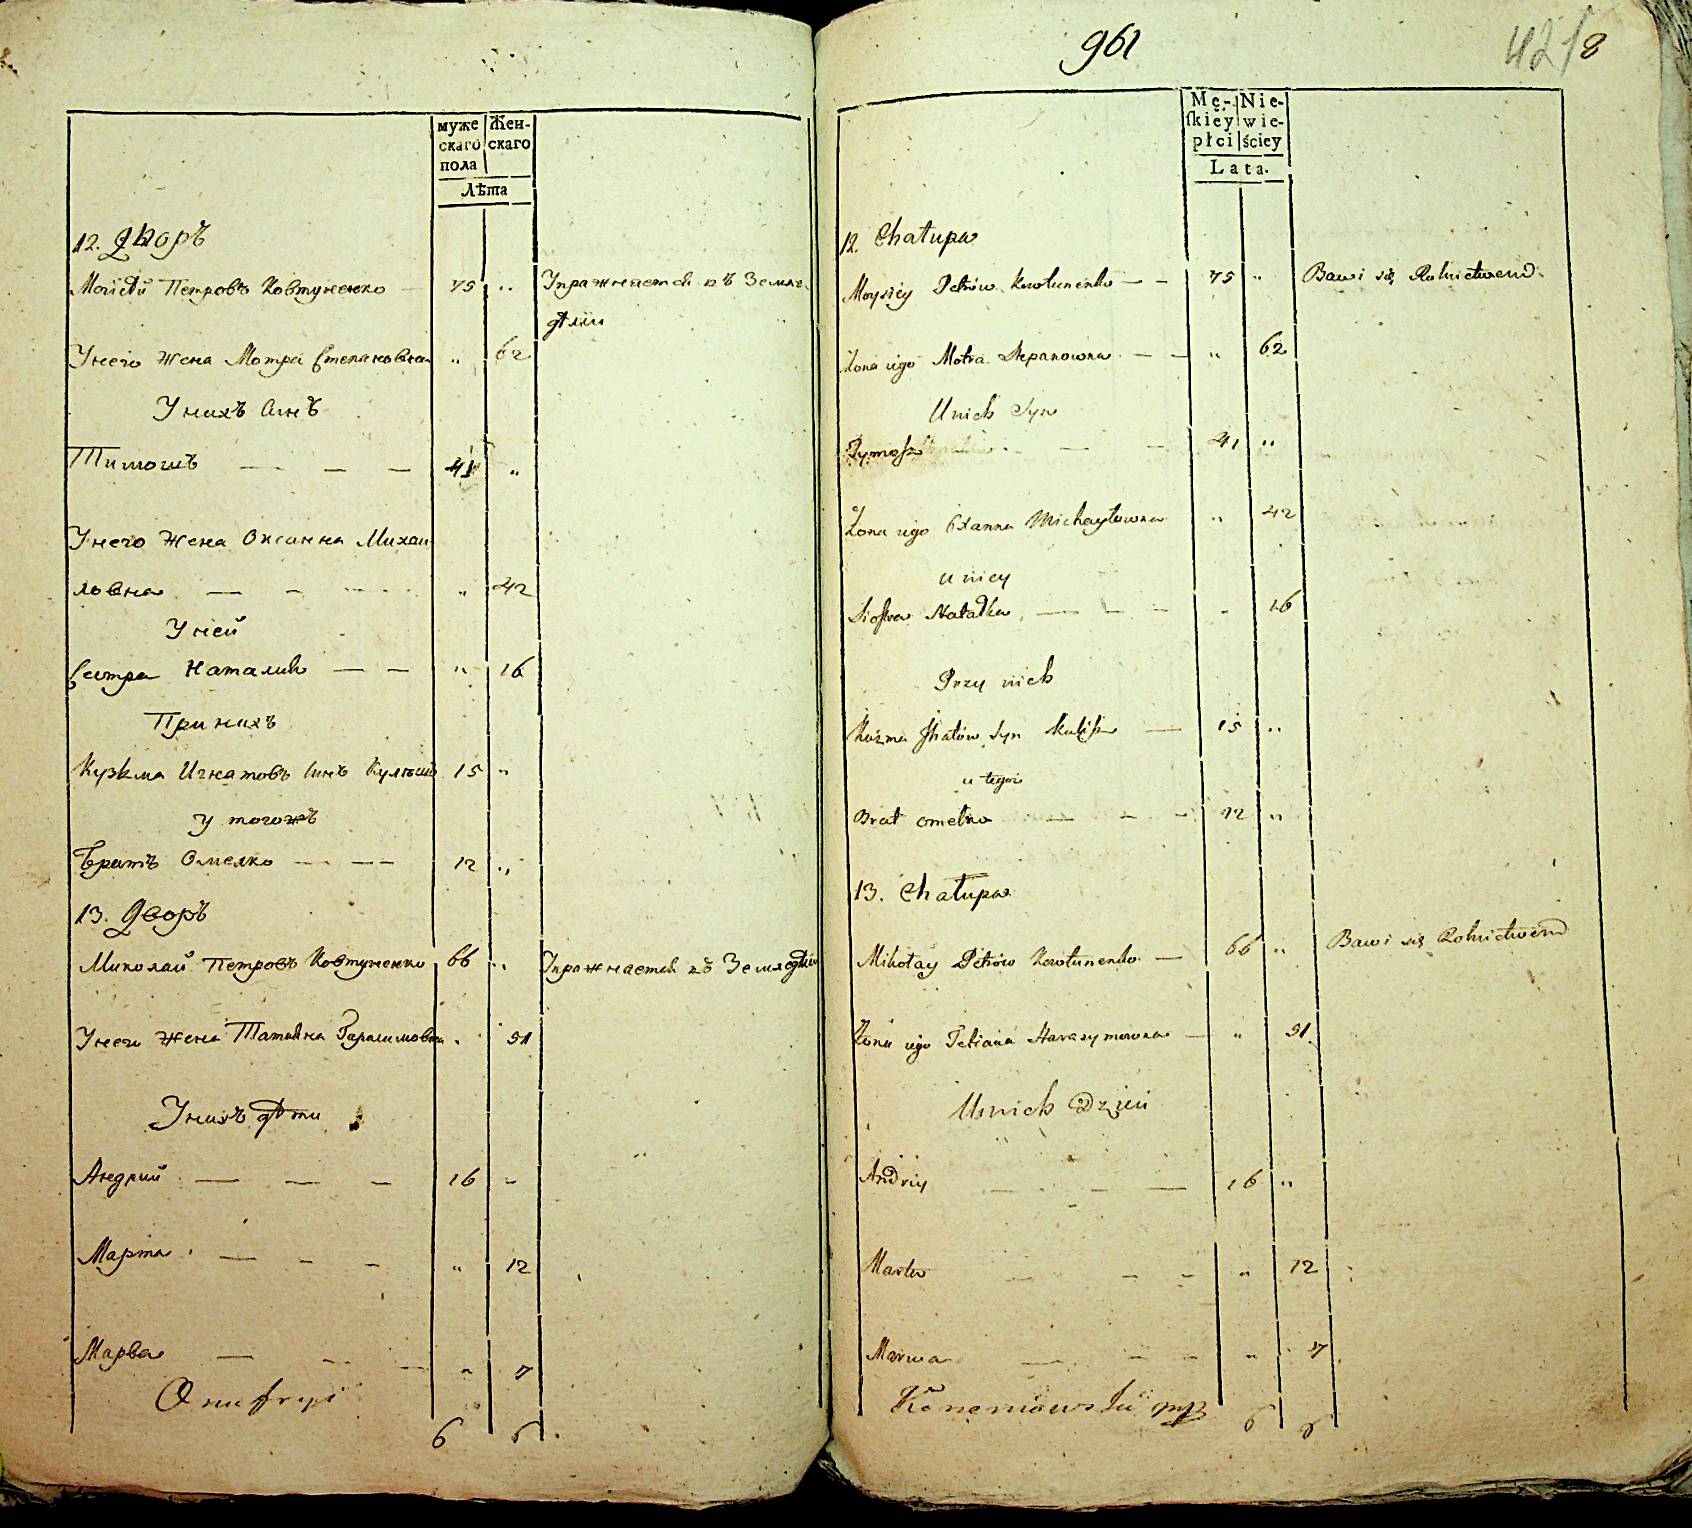 муже
скаго
пола
Жен-
скаго
Лѣта
12. Дворъ
Моисѣй Петровъ Ковтуненко — 75 „ Упражняется въ Земле
дѣлiи
У него Жена Мотря Степановна „ 62
У нихъ Синъ
Тимошъ — — — 41 „
У него Жена Оксинна Михаи
ловна — — „ 42
У ней
Сестра Наталия — — „ 16
При нихъ
Кузьма Игнатовъ Синъ Кулешъ 15 „
У тогожъ
Братъ Омелко — — — 12 „
13. Дворъ
Миколай Петровъ Ковтуненко 66 „ Упражняется въ Земледѣлiи
У него Жена Татьяна Гарасимовна „ 51
У нихъ дѣти
Андрий — — — 16 „
Марта — — — „ 12
Марва — — — „ 7
Onufryi
6 6
961
42 / 8
Mę-
skiey
płci
Nie-
wie-
ściey
Lata.
12. Chałupa
Moysiey Petrów Kowtunenko — — 75 „ Bawi się Rolnictwem
Żona iego Motra Stepanowna — — „ 62
U nich Syn
Tymosz — — 41 „
Żona iego Oxanna Michayłowna „ 42
U niey
Siostra Natałka — — — „ 16
Przy nich
Kuzma Ihnatów Syn Kulisz — 15 „
u tegoż
Brat Omelko — — — 12 „
13. Chałupa
Mikołay Petrów Kowtunenko — 66 „ Bawi się Rolnictwem
Żona iego Tetiana Harasymowna — „ 51.
U nich Dzieci
Andriy — — — 16 „
Marta — — — „ 12
Marwa — — — „ 7
6 6